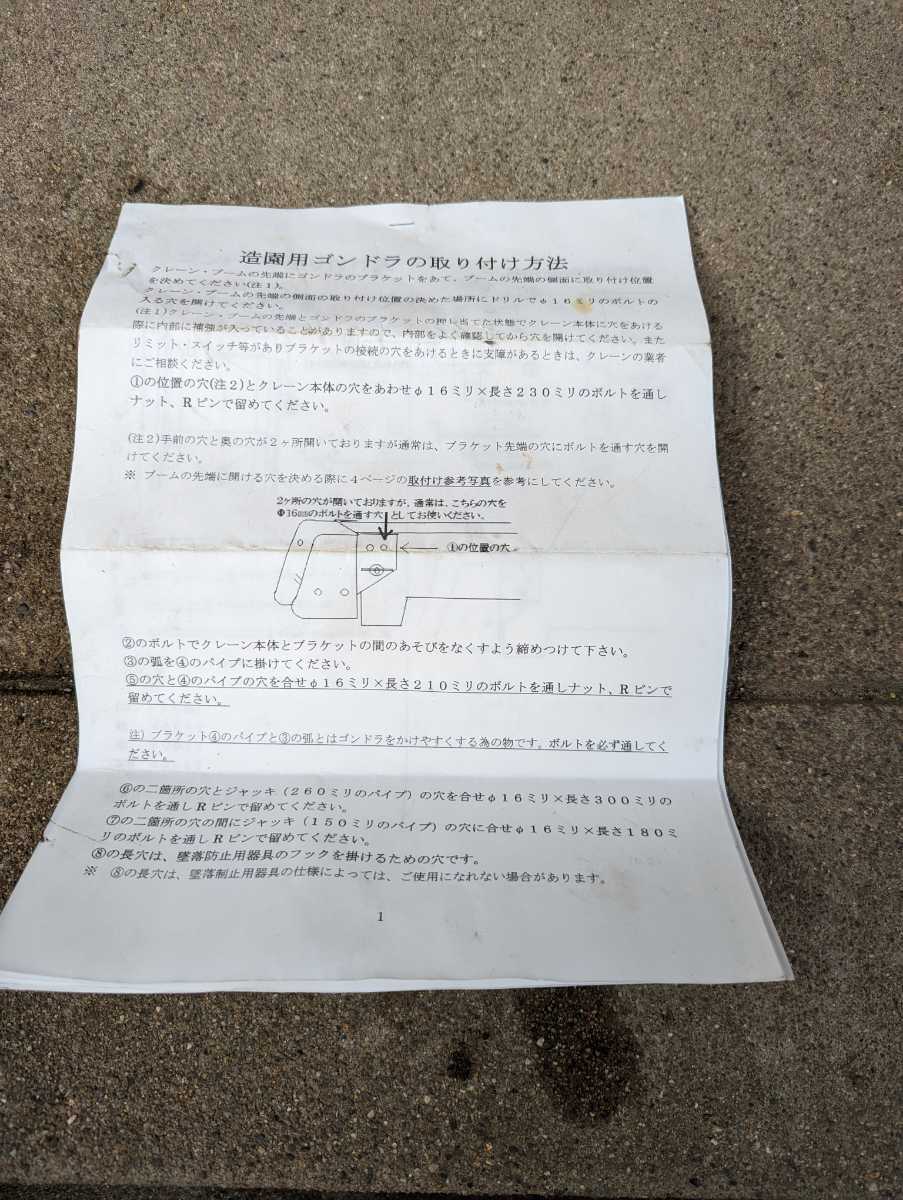 造園用ゴンドラの取り付け方法
クレーン・ブームの先端にゴンドラのブラケットをあて、ブームの先端の側面に取り付け位置
を決めてください(注1)。
クレーン・ブームの先端の側面の取り付け位置の決めた場所にドリルでφ16ミリのボルトの
入る穴を開けてください。
(注1)クレーン・ブームの先端とゴンドラのブラケットの押し当てた状態でクレーン本体に穴をあける
際に内部に補強が入っていることがありますので、内部をよく確認してから穴を開けてください。また
リミット・スイッチ等がありブラケットの接続の穴をあけるときに支障があるときは、クレーンの業者
にご相談ください。
①の位置の穴(注2)とクレーン本体の穴をあわせφ16ミリ×長さ230ミリのボルトを通し
ナット、Rピンで留めてください。
(注2)手前の穴と奥の穴が2ヶ所開いておりますが通常は、ブラケット先端の穴にボルトを通す穴を開
けてください。
※ ブームの先端に開ける穴を決める際に4ページの取付け参考写真を参考にしてください。
2ヶ所の穴が開いておりますが、通常は、こちらの穴を
Φ16㎜のボルトを通す穴 としてお使いください。
①の位置の穴
②のボルトでクレーン本体とブラケットの間のあそびをなくすよう締めつけて下さい。
③の弧を④のパイプに掛けてください。
⑤の穴と④のパイプの穴を合せφ16ミリ×長さ210ミリのボルトを通しナット、Rピンで
留めてください。
注) ブラケット④のパイプと③の弧とはゴンドラをかけやすくする為の物です。ボルトを必ず通してく
ださい。
⑥の二箇所の穴とジャッキ(260ミリのパイプ)の穴を合せφ16ミリ×長さ300ミリの
ボルトを通しRピンで留めてください。
⑦の二箇所の穴の間にジャッキ(150ミリのパイプ)の穴に合せφ16ミリ×長さ180ミ
リのボルトを通しRピンで留めてください。
⑧の長穴は、墜落防止用器具のフックを掛けるための穴です。
※ ⑧の長穴は、墜落制止用器具の仕様によっては、ご使用になれない場合があります。
1